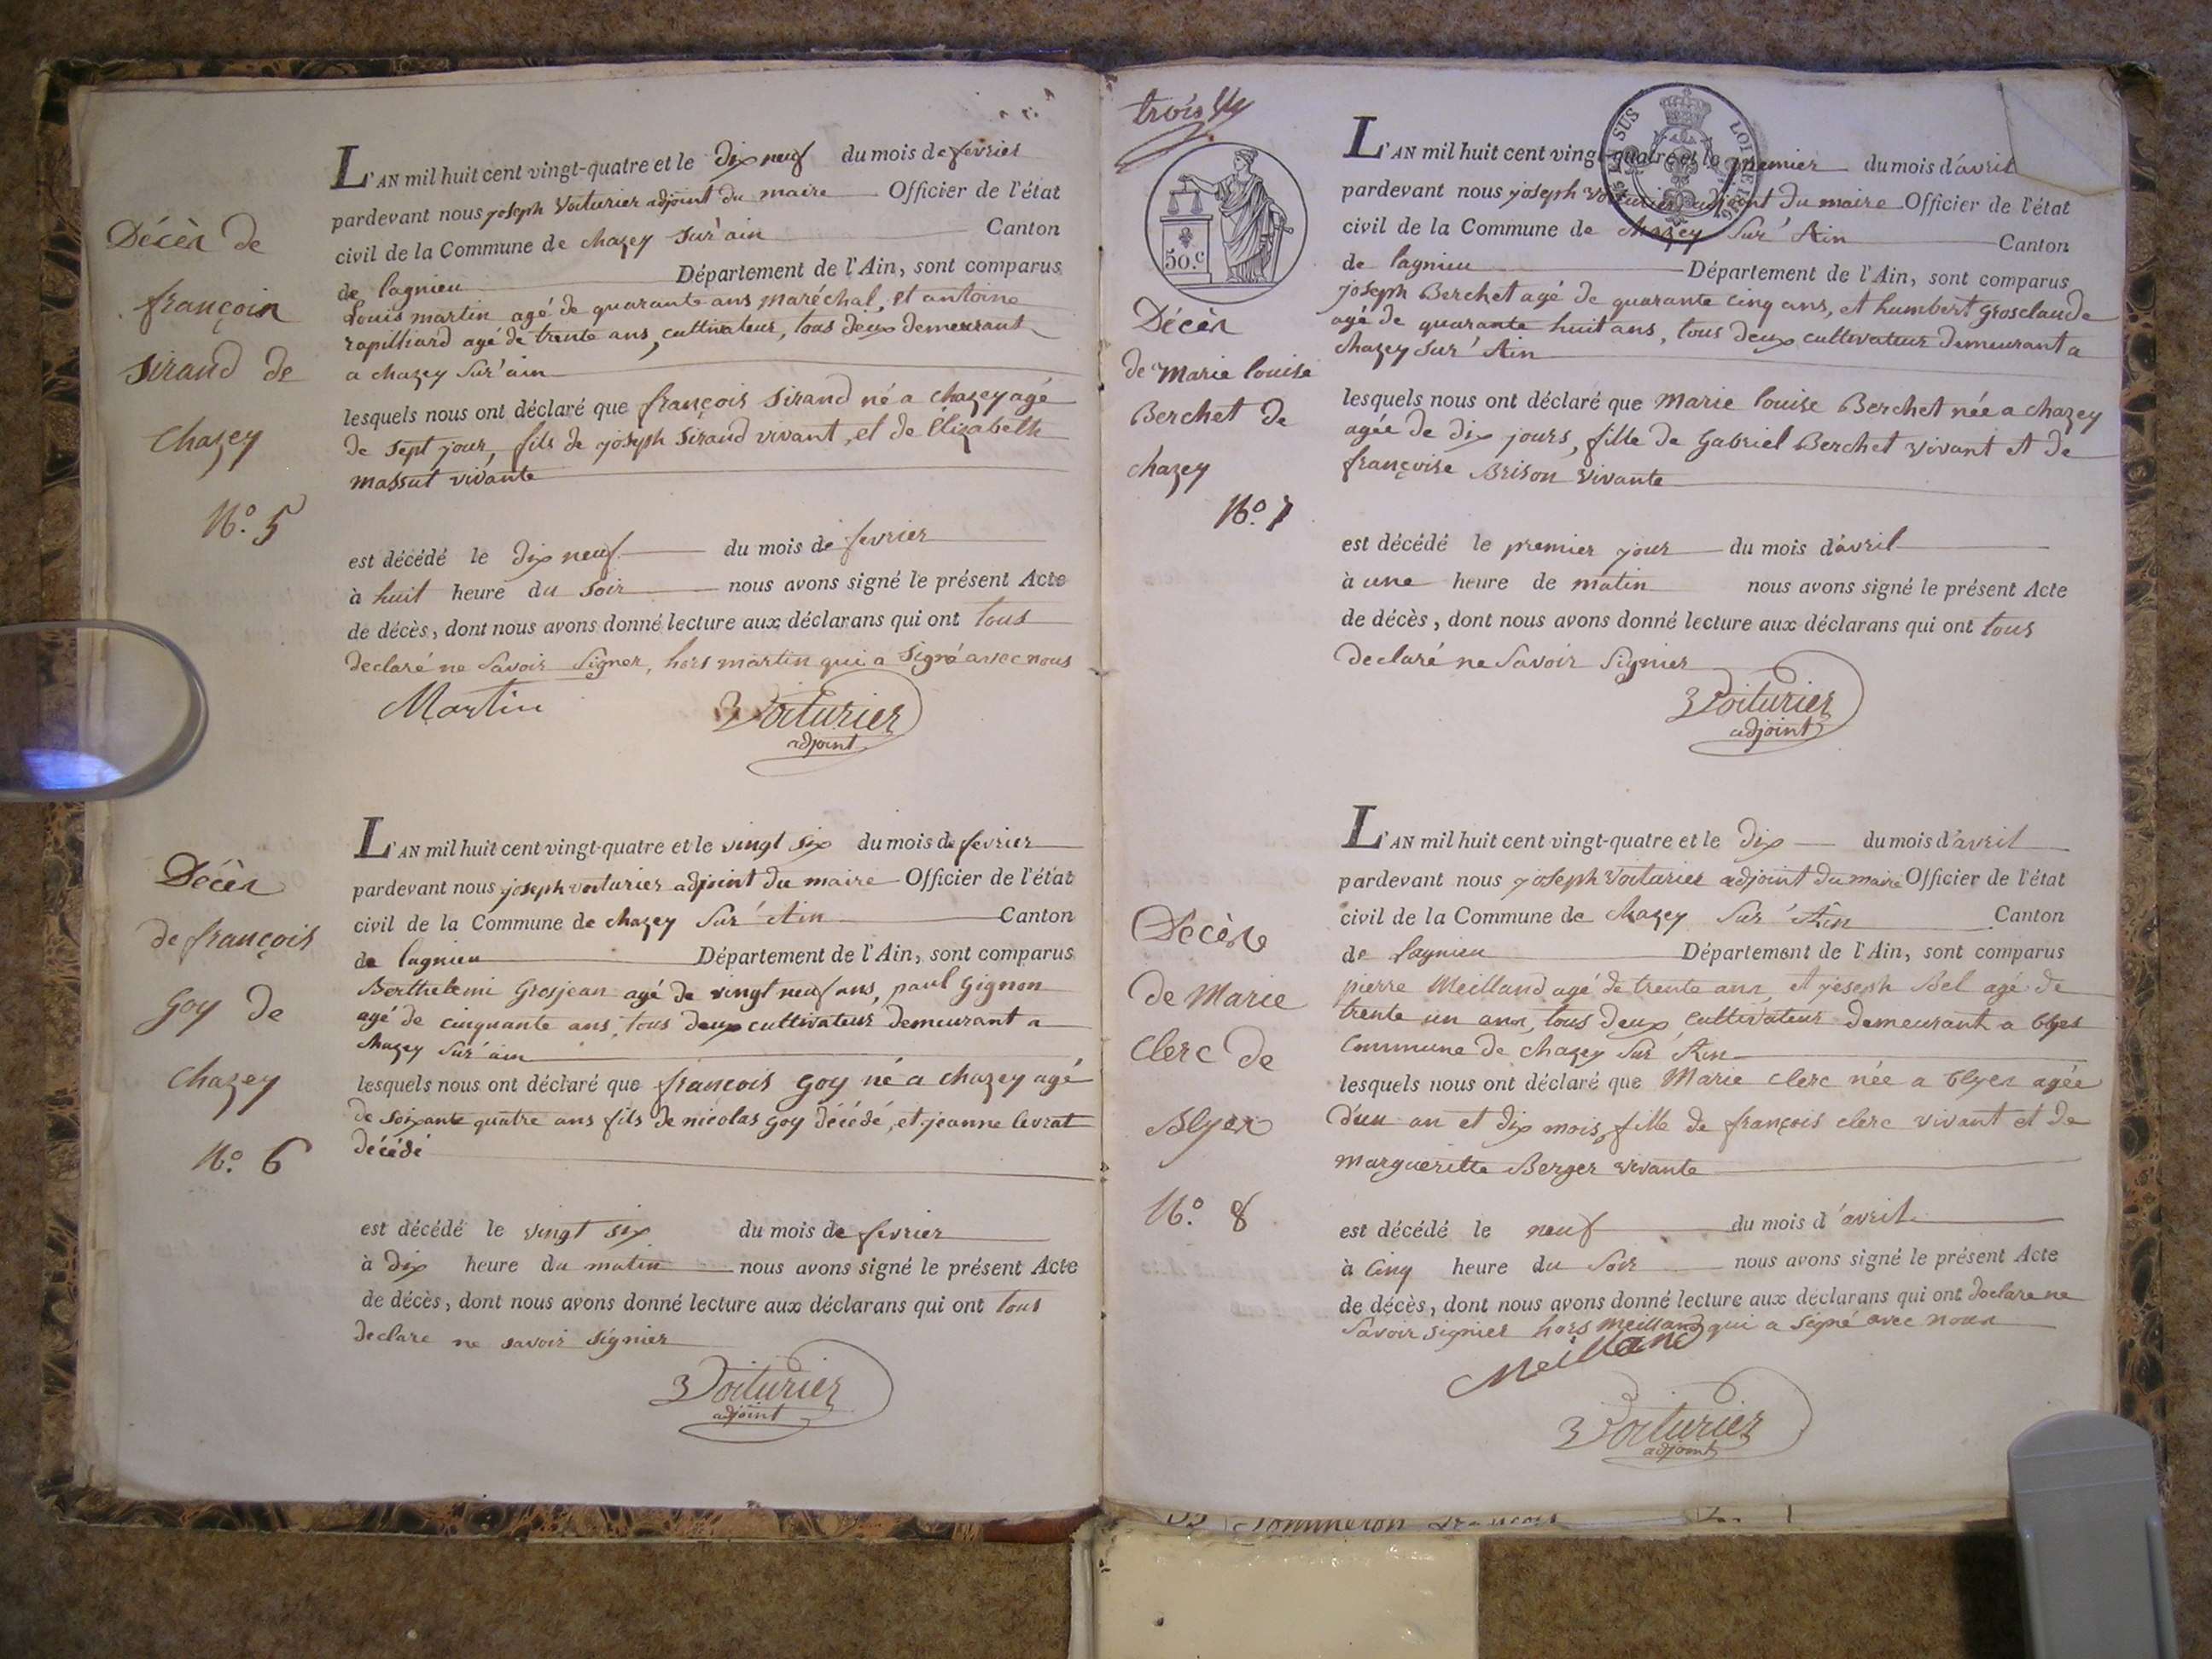 Décès de
françois
Sirand de
Chazey
N.o 5
L'AN mil huit cent vingt-quatre et le dix neuf du mois de fevrier
pardevant nous joseph Voiturier adjoint du maire Officier de l'état
civil de la Commune de chazey sur'ain Canton
de lagnieu Département de l'Ain, sont comparus
Louis martin agé de quarante ans maréchal, et antoine
rapilliard agé de trente ans, cultivateur, tous deux demeurant
a chazey Sur'ain
lesquels nous ont déclaré que françois Sirand né a chazey agé
de sept jour, fils de joseph Sirand vivant, et de Élizabeth
massut vivante
est décédé le dix neuf du mois de fevrier
à huit heure du soir nous avons signé le présent Acte
de décès, dont nous avons donné lecture aux déclarans qui ont tous
declaré ne Savoir Signer, hors martin qui a Signé avec nous
Martin Voiturier
adjoint
Décès
de françois
Goy de
Chazey
N.o 6
L'AN mil huit cent vingt-quatre et le vingt six du mois de fevrier
pardevant nous joseph voiturier adjoint du maire Officier de l'état
civil de la Commune de chazey Sur'Ain Canton
de lagnieu Département de l'Ain, sont comparus
Berthelemi Grosjean agé de vingt neuf ans, paul Gignon
agé de cinquante ans, tous deux cultivateur demeurant a
chazey Sur'ain
lesquels nous ont déclaré que françois Goy né a chazey agé
de Soixante quatre ans fils de nicolas goy décédé, et jeanne levrat
décédé
est décédé le vingt six du mois de fevrier
à dix heure du matin nous avons signé le présent Acte
de décès, dont nous avons donné lecture aux déclarans qui ont tous
declare ne savoir signier
Voiturier
adjoint
trois
50.c
Décès
de Marie louise
Berchet de
chazey
N.o 7
L'AN mil huit cent vingt-quatre et le premier du mois d'avril
pardevant nous joseph Voiturier adjoint du maire Officier de l'état
civil de la Commune de chazey Sur'Ain Canton
de lagnieu Département de l'Ain, sont comparus
joseph Berchet agé de quarante cinq ans, et humbert grosclaude
agé de quarante huit ans, tous deux cultivateur demeurant a
chazey sur'Ain
lesquels nous ont déclaré que Marie louise Berchet née a chazey
agée de dix jours, fille de Gabriel Berchet vivant et de
françoise Brison vivante
est décédé le premier jour du mois d'avril
à une heure de matin nous avons signé le présent Acte
de décès, dont nous avons donné lecture aux déclarans qui ont tous
declaré ne Savoir Signier
Voiturier
adjoint
Décès
de Marie
Clerc de
Blyes
N.o 8
L'AN mil huit cent vingt-quatre et le dix du mois d'avril
pardevant nous joseph Voiturier adjoint du maire Officier de l'état
civil de la Commune de chazey Sur'Ain Canton
de lagnieu Département de l'Ain, sont comparus
pierre Meilland agé de trente ans, et joseph Bel agé de
trente un ans, tous deux cultivateur demeurant a blyes
Commune de chazey Sur Ain
lesquels nous ont déclaré que Marie clerc née a blyes agée
d'un an et dix mois, fille de françois clerc vivant et de
Margueritte Berger vivante
est décédé le neuf du mois d'avril
à cinq heure du Soir nous avons signé le présent Acte
de décès, dont nous avons donné lecture aux déclarans qui ont declare ne
Savoir signier hors Meilland qui a Signé avec nous
Meilland
Voiturier
adjoint